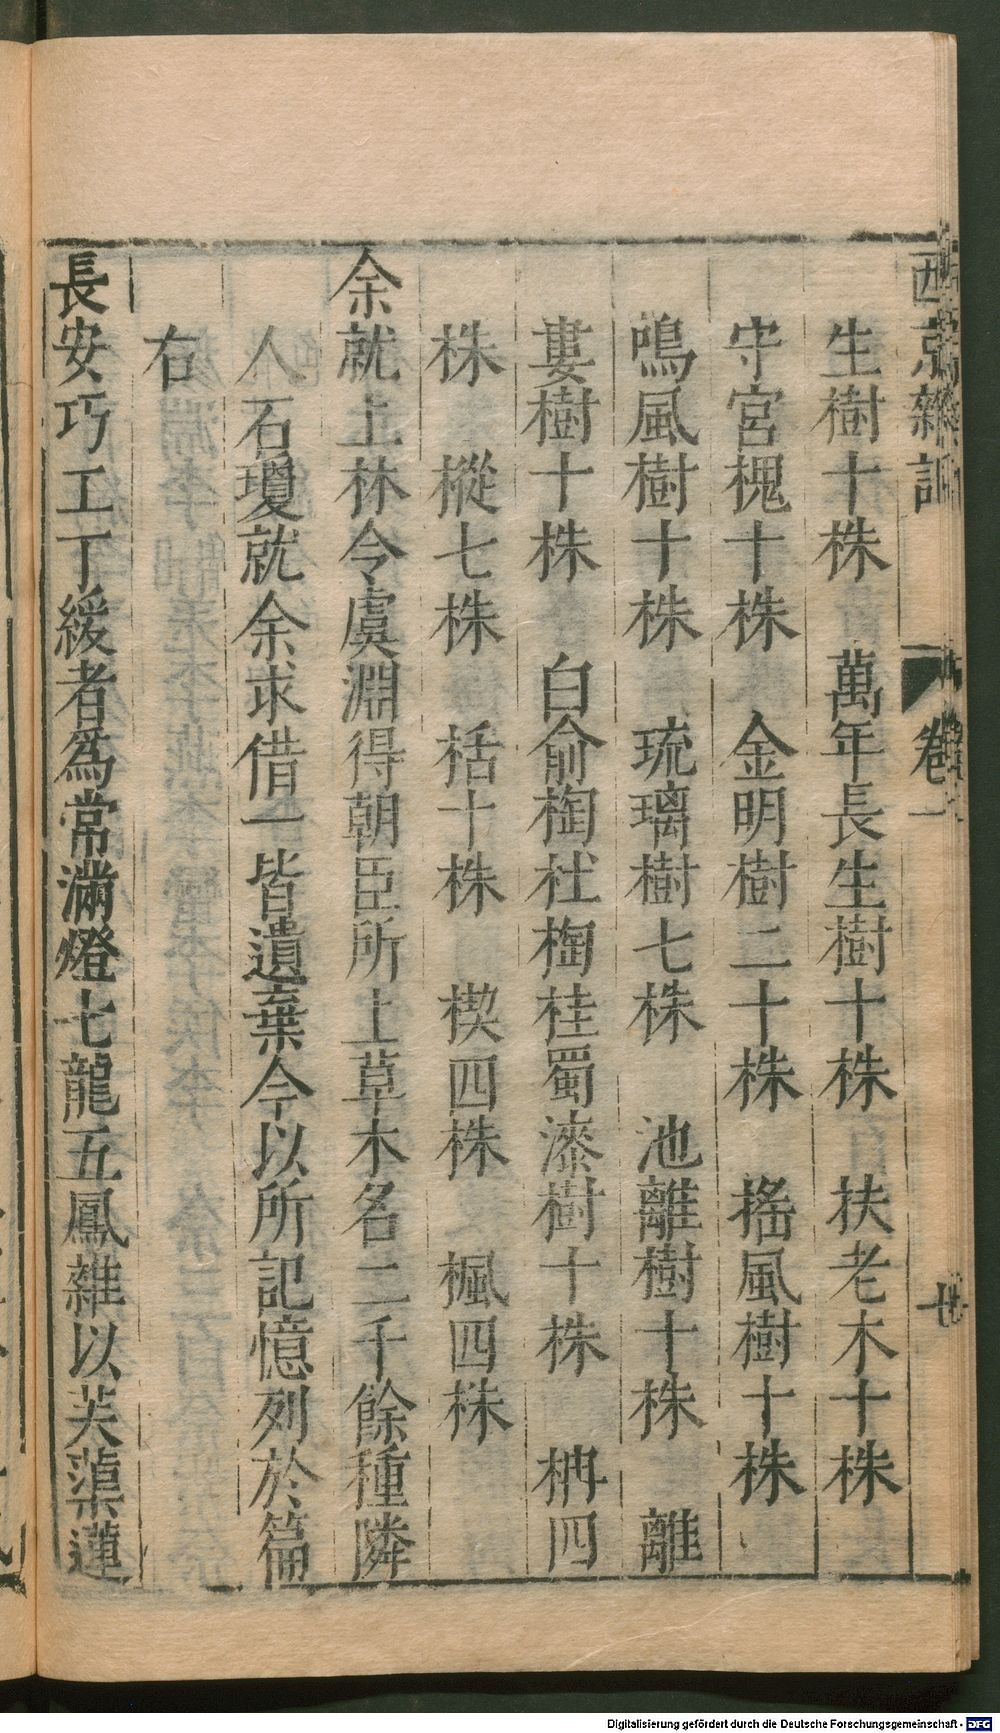 西京雜記　卷一　廿
生樹十株　萬年長生樹十株　扶老木十株
守宮槐十株　金明樹二十株　搖風樹十株
鳴風樹十株　琉璃樹七株　池離樹十株　離
婁樹十株　白俞梅杜梅桂蜀漆樹十株　枏四
株　樅七株　栝十株　楔四株　楓四株
余就上林令虞淵得朝臣所上草木名二千餘種隣
人石瓊就余求借一皆遺棄今以所記憶列於篇
右
長安巧工丁緩者為常滿燈七龍五鳳雜以芙蕖蓮
Digitalisierung gefördert durch die Deutsche Forschungsgemeinschaft - DFG